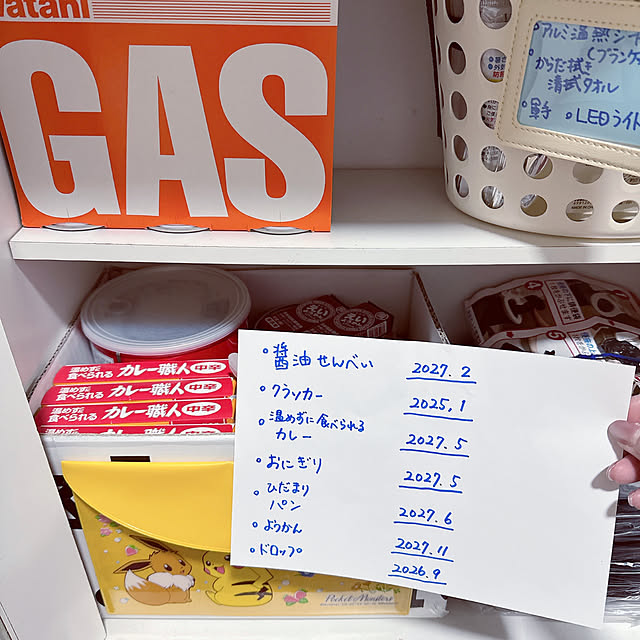 Iwatani
GAS
・アルミ温熱シート
(ブランケ
・からだ拭き
清拭タオル
・軍手 ・LEDライト
温めずに食べられる カレー職人 中辛
温めずに食べられる カレー職人 中辛
温めずに食べられる カレー職人 中辛
温めずに カレー職人 中辛
えいようかん
・醤油せんべい 2027.2
・クラッカー 2025.1
・温めずに食べられる
カレー 2027.5
・おにぎり 2027.5
・ひだまり
パン 2027.6
・ようかん 2027.11
・ドロップ 2026.9
Pocket Monsters